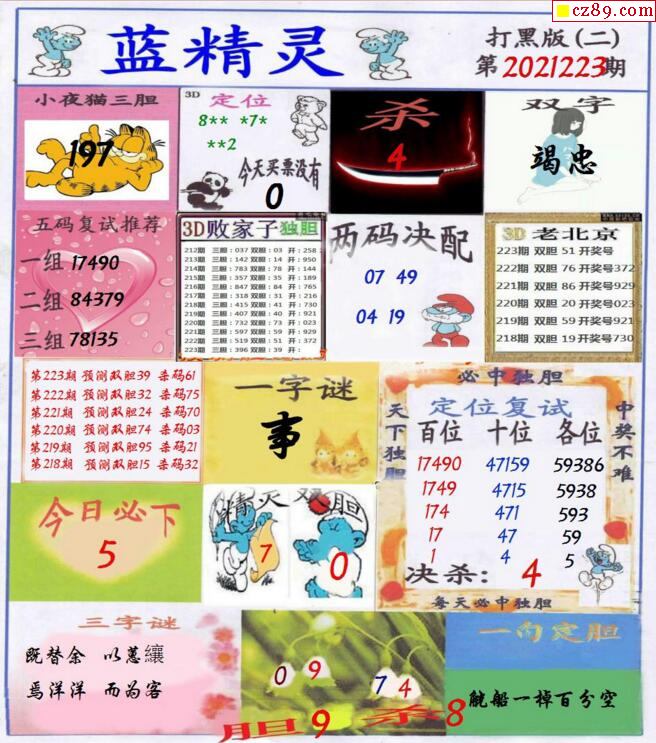 cz89.com
蓝精灵
打黑版(二)
第2021223期
小夜猫三胆
197
3D 定位
8** *7*
**2
今天买票没有
0
杀
4
双字
竭忠
五码复试推荐
一组 17490
二组 84379
三组 78135
3D败家子独胆
212期 三胆:037 双胆:03 开:258
213期 三胆:142 双胆:14 开:950
214期 三胆:783 双胆:78 开:144
215期 三胆:357 双胆:35 开:189
216期 三胆:847 双胆:84 开:765
217期 三胆:318 双胆:31 开:216
218期 三胆:415 双胆:41 开:730
219期 三胆:407 双胆:40 开:921
220期 三胆:732 双胆:73 开:023
221期 三胆:597 双胆:59 开:929
222期 三胆:519 双胆:51 开:372
223期 三胆:396 双胆:39 开:
两码决配
07 49
04 19
3D 老北京
223期 双胆 51 开奖号
222期 双胆 76 开奖号372
221期 双胆 86 开奖号929
220期 双胆 20 开奖号023
219期 双胆 59 开奖号921
218期 双胆 19 开奖号730
第223期 预测双胆39 杀码61
第222期 预测双胆32 杀码75
第221期 预测双胆24 杀码70
第220期 预测双胆74 杀码03
第219期 预测双胆95 杀码21
第218期 预测双胆15 杀码32
一字谜
事
必中独胆
天下独胆
中奖不难
定位复试
百位 十位 各位
17490 47159 59386
1749 4715 5938
174 471 593
17 47 59
1 4 5
决杀: 4
每天必中独胆
今日必下
5
精灵双胆
7 0
三字谜
既替余 以蕙纕
焉洋洋 而为客
0 9 7 4
胆9 杀8
一句定胆
觥船一棹百分空